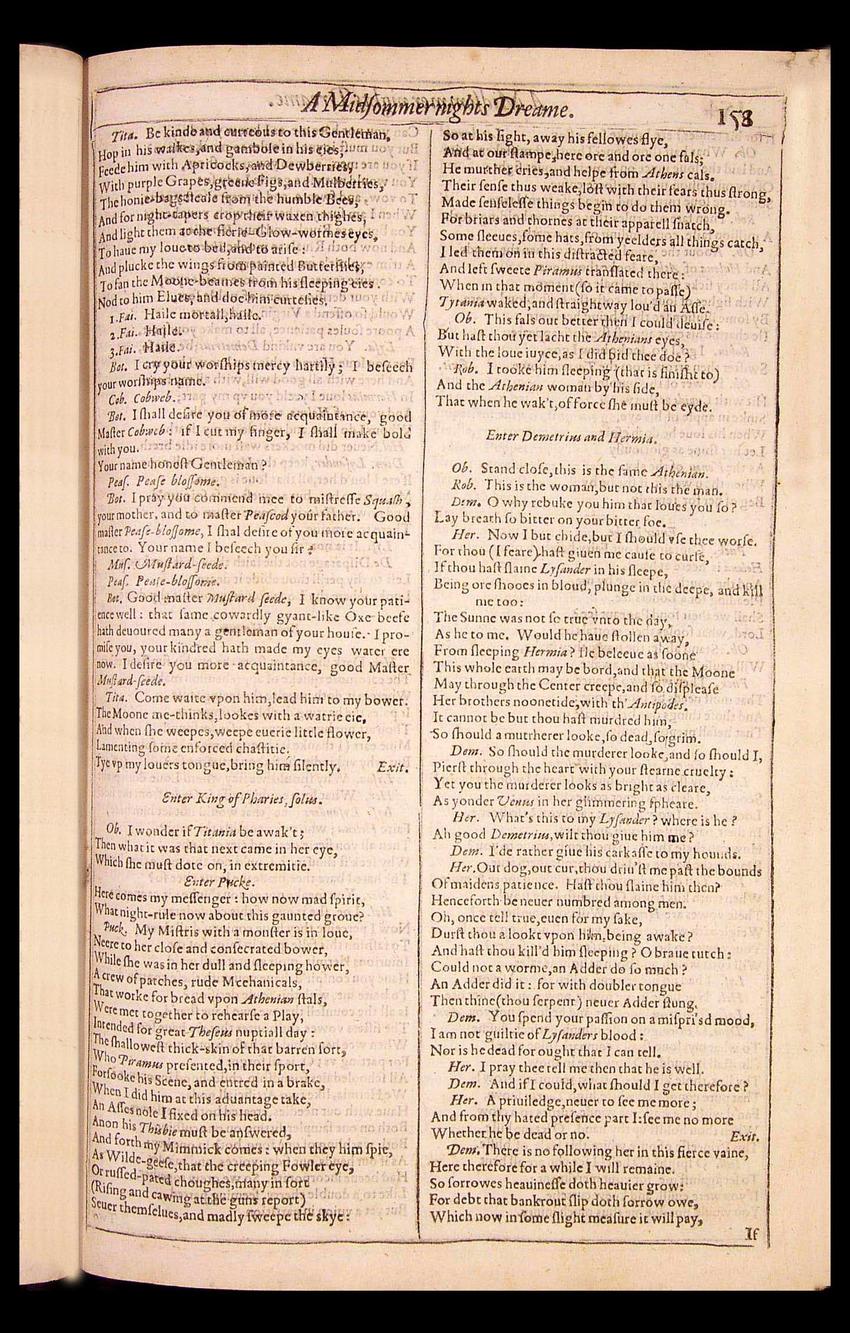 A Midsommer nights Dreame.
158
Tita. Be kinde and curteous to this Gentleman,
Hop in his walkes, and gambole in his eies,
Feede him with Apricocks, and Dewberries,
With purple Grapes, greene Figs, and Mulberries,
The honie-bags steale from the humble Bees,
And for night-tapers crop their waxen thighes,
And light them at the fierie-Glow-wormes eyes,
To haue my loue to bed, and to arise:
And plucke the wings from painted Butterflies,
To fan the Moone-beames from his sleeping eies.
Nod to him Elues, and doe him curtesies.
1.Fai. Haile mortall, haile.
2.Fai. Haile.
3.Fai. Haile.
Bot. I cry your worships mercy hartily; I beseech
your worships name.
Cob. Cobweb.
Bot. I shall desire you of more acquaintance, good
Master Cobweb: if I cut my finger, I shall make bold
with you.
Your name honest Gentleman?
Peas. Pease blossome.
Bot. I pray you commend mee to mistresse Squash,
your mother, and to master Peascod your father. Good
master Pease-blossome, I shal desire of you more acquain-
tance to. Your name I beseech you sir?
Mus. Mustard-seede.
Peas. Pease-blossome.
Bot. Good master Mustard seede, I know your pati-
ence well: that same cowardly gyant-like Oxe beefe
hath deuoured many a gentleman of your house. I pro-
mise you, your kindred hath made my eyes water ere
now. I desire you more acquaintance, good Master
Mustard-seede.
Tita. Come waite vpon him, lead him to my bower.
The Moone me-thinks, lookes with a watrie eie,
And when she weepes, weepe euerie little flower,
Lamenting some enforced chastitie.
Tye vp my louers tongue, bring him silently. Exit.
Enter King of Pharies, solus.
Ob. I wonder if Titania be awak't;
Then what it was that next came in her eye,
Which she must dote on, in extremitie.
Enter Pucke.
Here comes my messenger: how now mad spirit,
What night-rule now about this gaunted groue?
Puck. My Mistris with a monster is in loue,
Neere to her close and consecrated bower,
While she was in her dull and sleeping hower,
A crew of patches, rude Mcehanicals,
That worke for bread vpon Athenian stals,
Were met together to rehearse a Play,
Intended for great Theseus nuptiall day:
The shallowest thick-skin of that barren sort,
Who Piramus presented, in their sport,
Forsooke his Scene, and entred in a brake,
When I did him at this aduantage take,
An Asses nole I fixed on his head.
Anon his Thisbie must be answered,
And forth my Mimmick comes: when they him spie,
As Wilde-geese, that the creeping Fowler eye,
Or russed-pated choughes, many in sort
(Rising and cawing at the guns report)
Seuer themselues, and madly sweepe the skye:
So at his sight, away his fellowes flye,
And at our stampe, here ore and ore one fals;
He murther cries, and helpe from Athens cals.
Their sense thus weake, lost with their fears thus strong,
Made senselesse things begin to do them wrong.
For briars and thornes at their apparell snatch,
Some sleeues, some hats, from yeelders all things catch,
I led them on in this distracted feare,
And left sweete Piramus translated there:
When in that moment (so it came to passe)
Tytania waked, and straightway lou'd an Asse.
Ob. This fals out better then I could deuise:
But hast thou yet lacht the Athenians eyes,
With the loue iuyce, as I did bid thee doe?
Rob. I tooke him sleeping (that is finisht to)
And the Athenian woman by his side,
That when he wak't, of force she must be eyde.
Enter Demetrius and Hermia.
Ob. Stand close, this is the same Athenian.
Rob. This is the woman, but not this the man.
Dem. O why rebuke you him that loues you so?
Lay breath so bitter on your bitter foe.
Her. Now I but chide, but I should vse thee worse.
For thou (I feare) hast giuen me cause to curse,
If thou hast slaine Lysander in his sleepe,
Being ore shooes in bloud, plunge in the deepe, and kill
me too:
The Sunne was not so true vnto the day,
As he to me. Would he haue stollen away,
From sleeping Hermia? Ile beleeue as soone
This whole earth may be bord, and that the Moone
May through the Center creepe, and so displease
Her brothers noonetide, with th'Antipodes.
It cannot be but thou hast murdred him,
So should a mutrherer looke, so dead, so grim.
Dem. So should the murderer looke, and so should I,
Pierst through the heart with your stearne cruelty:
Yet you the murderer looks as bright as cleare,
As yonder Venus in her glimmering spheare.
Her. What's this to my Lysander? where is he?
Ah good Demetrius, wilt thou giue him me?
Dem. I'de rather giue his carkasse to my hounds.
Her. Out dog, out cur, thou driu'st me past the bounds
Of maidens patience. Hast thou slaine him then?
Henceforth be neuer numbred among men.
Oh, once tell true, euen for my sake,
Durst thou a lookt vpon him, being awake?
And hast thou kill'd him sleeping? O braue tutch:
Could not a worme, an Adder do so much?
An Adder did it: for with doubler tongue
Then thine (thou serpent) neuer Adder stung.
Dem. You spend your passion on a mispri'sd mood,
I am not guiltie of Lysanders blood:
Nor is he dead for ought that I can tell.
Her. I pray thee tell me then that he is well.
Dem. And if I could, what should I get therefore?
Her. A priuiledge, neuer to see me more;
And from thy hated presence part I: see me no more
Whether he be dead or no. Exit.
Dem. There is no following her in this fierce vaine,
Here therefore for a while I will remaine.
So sorrowes heauinesse doth heauier grow:
For debt that bankrout slip doth sorrow owe,
Which now in some slight measure it will pay,
If